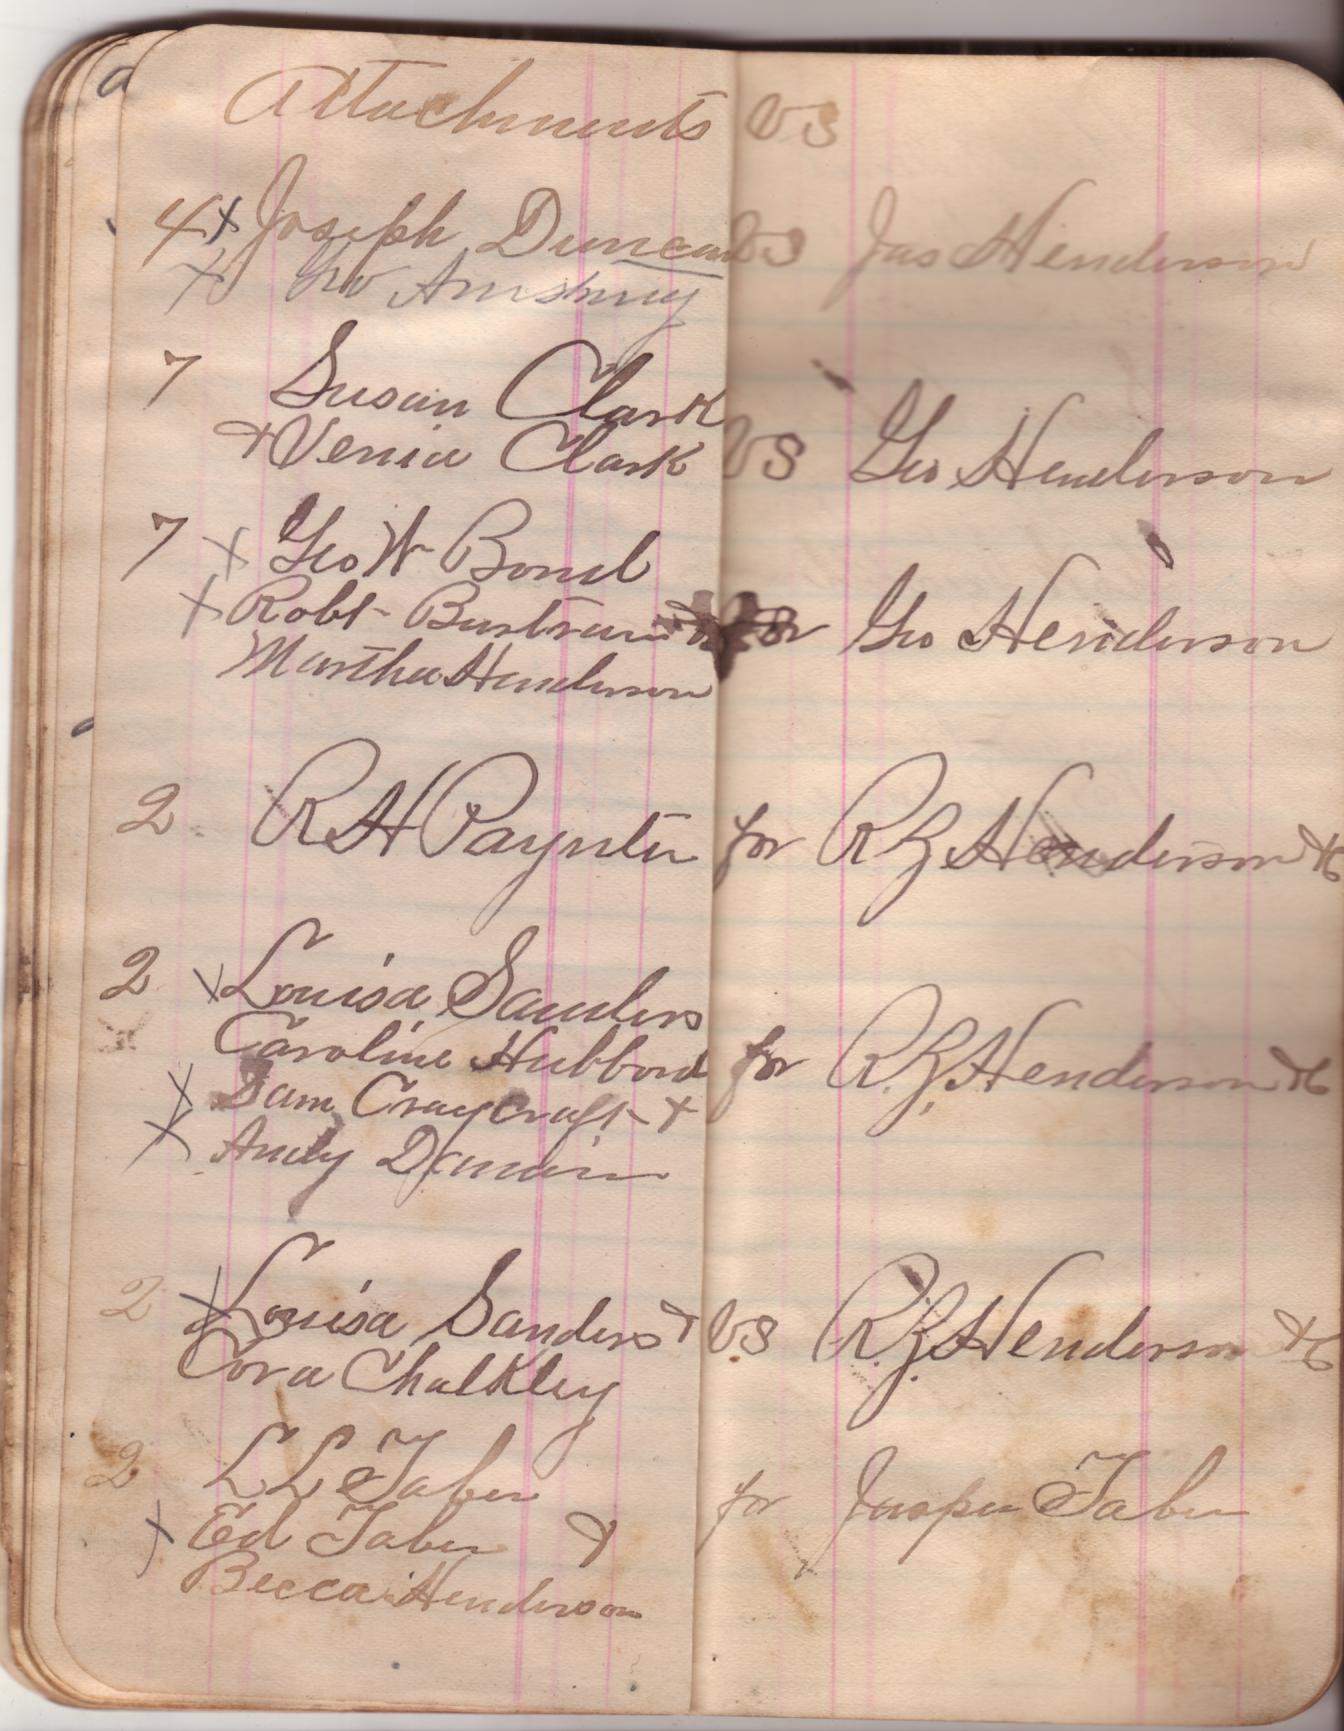 Attachments vs
4 x Joseph Duncan vs Jas Henderson
x Geo Amsbury
7 Susan Clark
& Venia Clark vs Geo Henderson
7 x Geo W Bond
x Robt Bartram & for Geo Henderson
Martha Henderson
2 R H Paynter for R Z Henderson &c
2 x Louisa Sanders
Caroline Hubbord for R. Z. Henderson &c
x Sam Craycraft &
x Andy Damin
2 x Louisa Sanders & vs R. Z. Henderson &c
Cora Chalkley
2 L L Taber
x Ed Taber & for Jasper Taber
Becca Henderson